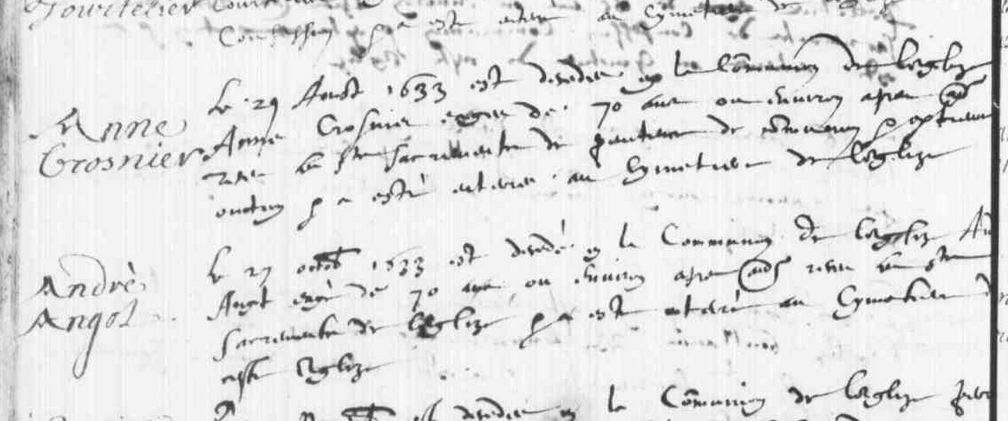 est enterré au Cymetiere de
Anne
Crosnier
Le 29 Aoust 1633 est decedee en la Cõmunion de leglize
Anne Crosnier eagee de 70 ans ou environ apres avoir
receu les Sts sacrements de penitence de communion & extreme
onction & a esté enterree au Cymetiere de leglize
André
Angot
Le 29 octob 1633 est decedé en la Communion de leglize An
Angot eagé de 70 ans ou environ apres receu les Sts
sacrements de leglize & a esté enterré au Cymetiere
ceste Eglize
est decedee en la Cõmunion de leglize